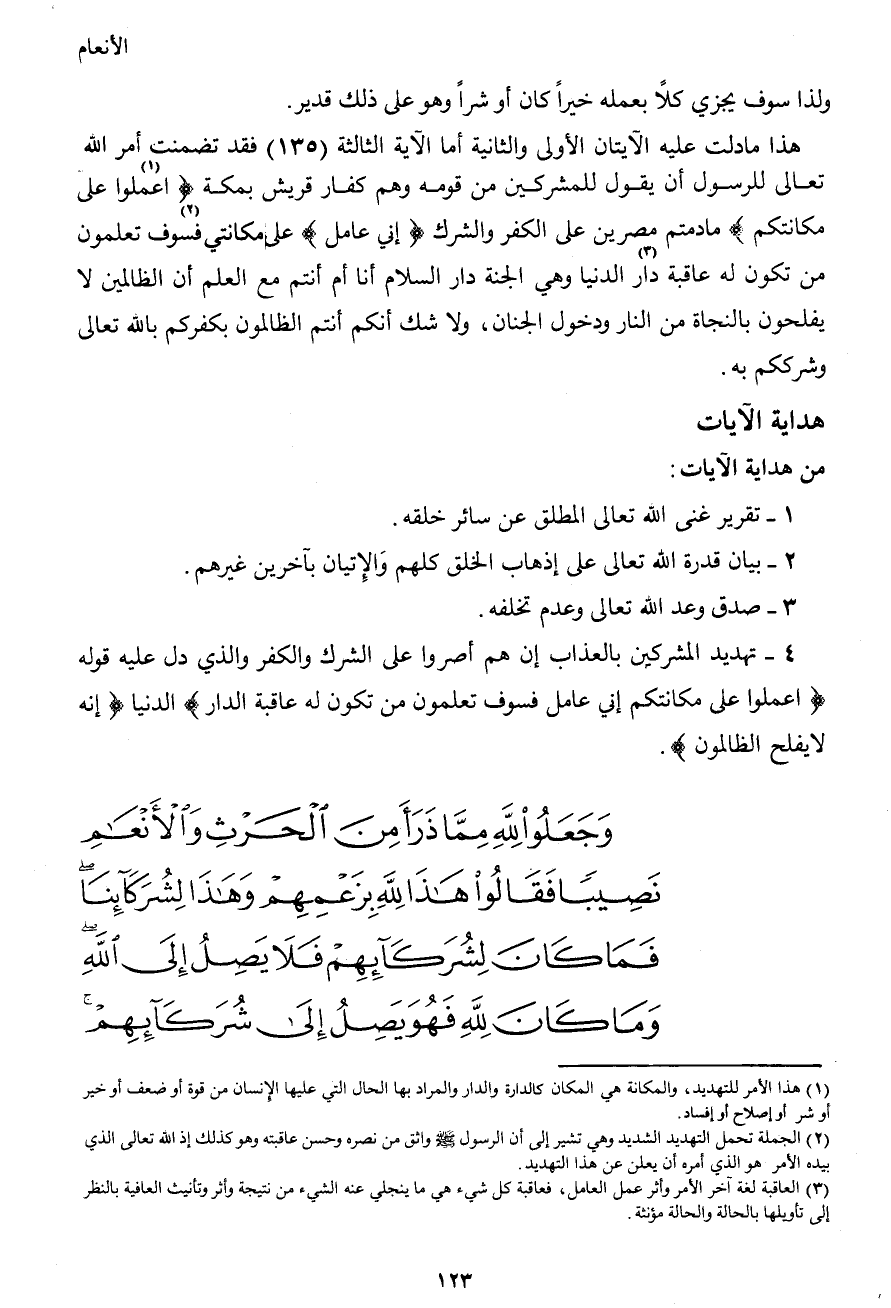 الأنعام
ولذا سوف يجزي كلاً بعمله خيراً كان أو شراً وهو على ذلك قدير.
هذا مادلت عليه الآيتان الأولى والثانية أما الآية الثالثة (١٣٥) فقد تضمنت أمر الله
تعالى للرسول أن يقول للمشركين من قومه وهم كفار قريش بمكة ﴿ اعملوا(١) على
مكانتكم ﴾ مادمتم مصرين على الكفر والشرك ﴿ إني عامل ﴾ على مكانتي(٢) فسوف تعلمون
من تكون له عاقبة(٣) دار الدنيا وهي الجنة دار السلام أنا أم أنتم مع العلم أن الظالمين لا
يفلحون بالنجاة من النار ودخول الجنان، ولا شك أنكم أنتم الظالمون بكفركم بالله تعالى
وشرككم به.
هداية الآيات
من هداية الآيات:
١ - تقرير غنى الله تعالى المطلق عن سائر خلقه.
٢ - بيان قدرة الله تعالى على إذهاب الخلق كلهم وَالإتيان بآخرين غيرهم.
٣ - صدق وعد الله تعالى وعدم تخلفه.
٤ - تهديد المشركين بالعذاب إن هم أصروا على الشرك والكفر والذي دل عليه قوله
﴿ اعملوا على مكانتكم إني عامل فسوف تعلمون من تكون له عاقبة الدار ﴾ الدنيا ﴿ إنه
لايفلح الظالمون ﴾.
وَجَعَلُواْ لِلَّهِ مِمَّا ذَرَأَ مِنَ ٱلْحَرْثِ وَٱلْأَنْعَٰمِ
نَصِيبًا فَقَالُواْ هَٰذَا لِلَّهِ بِزَعْمِهِمْ وَهَٰذَا لِشُرَكَآئِنَا ۖ
فَمَا كَانَ لِشُرَكَآئِهِمْ فَلَا يَصِلُ إِلَى ٱللَّهِ ۖ
وَمَا كَانَ لِلَّهِ فَهُوَ يَصِلُ إِلَىٰ شُرَكَآئِهِمْ ۚ
(١) هذا الأمر للتهديد، والمكانة هي المكان كالدارة والدار والمراد بها الحال التي عليها الإنسان من قوة أو ضعف أو خير
أو شر أو إصلاح أو إفساد.
(٢) الجملة تحمل التهديد الشديد وهي تشير إلى أن الرسول ﷺ واثق من نصره وحسن عاقبته وهو كذلك إذ الله تعالى الذي
بيده الأمر هو الذي أمره أن يعلن عن هذا التهديد.
(٣) العاقبة لغة آخر الأمر وأثر عمل العامل، فعاقبة كل شيء هي ما ينجلي عنه الشيء من نتيجة وأثر وتأنيث العافية بالنظر
إلى تأويلها بالحالة والحالة مؤنثة.
١٢٣